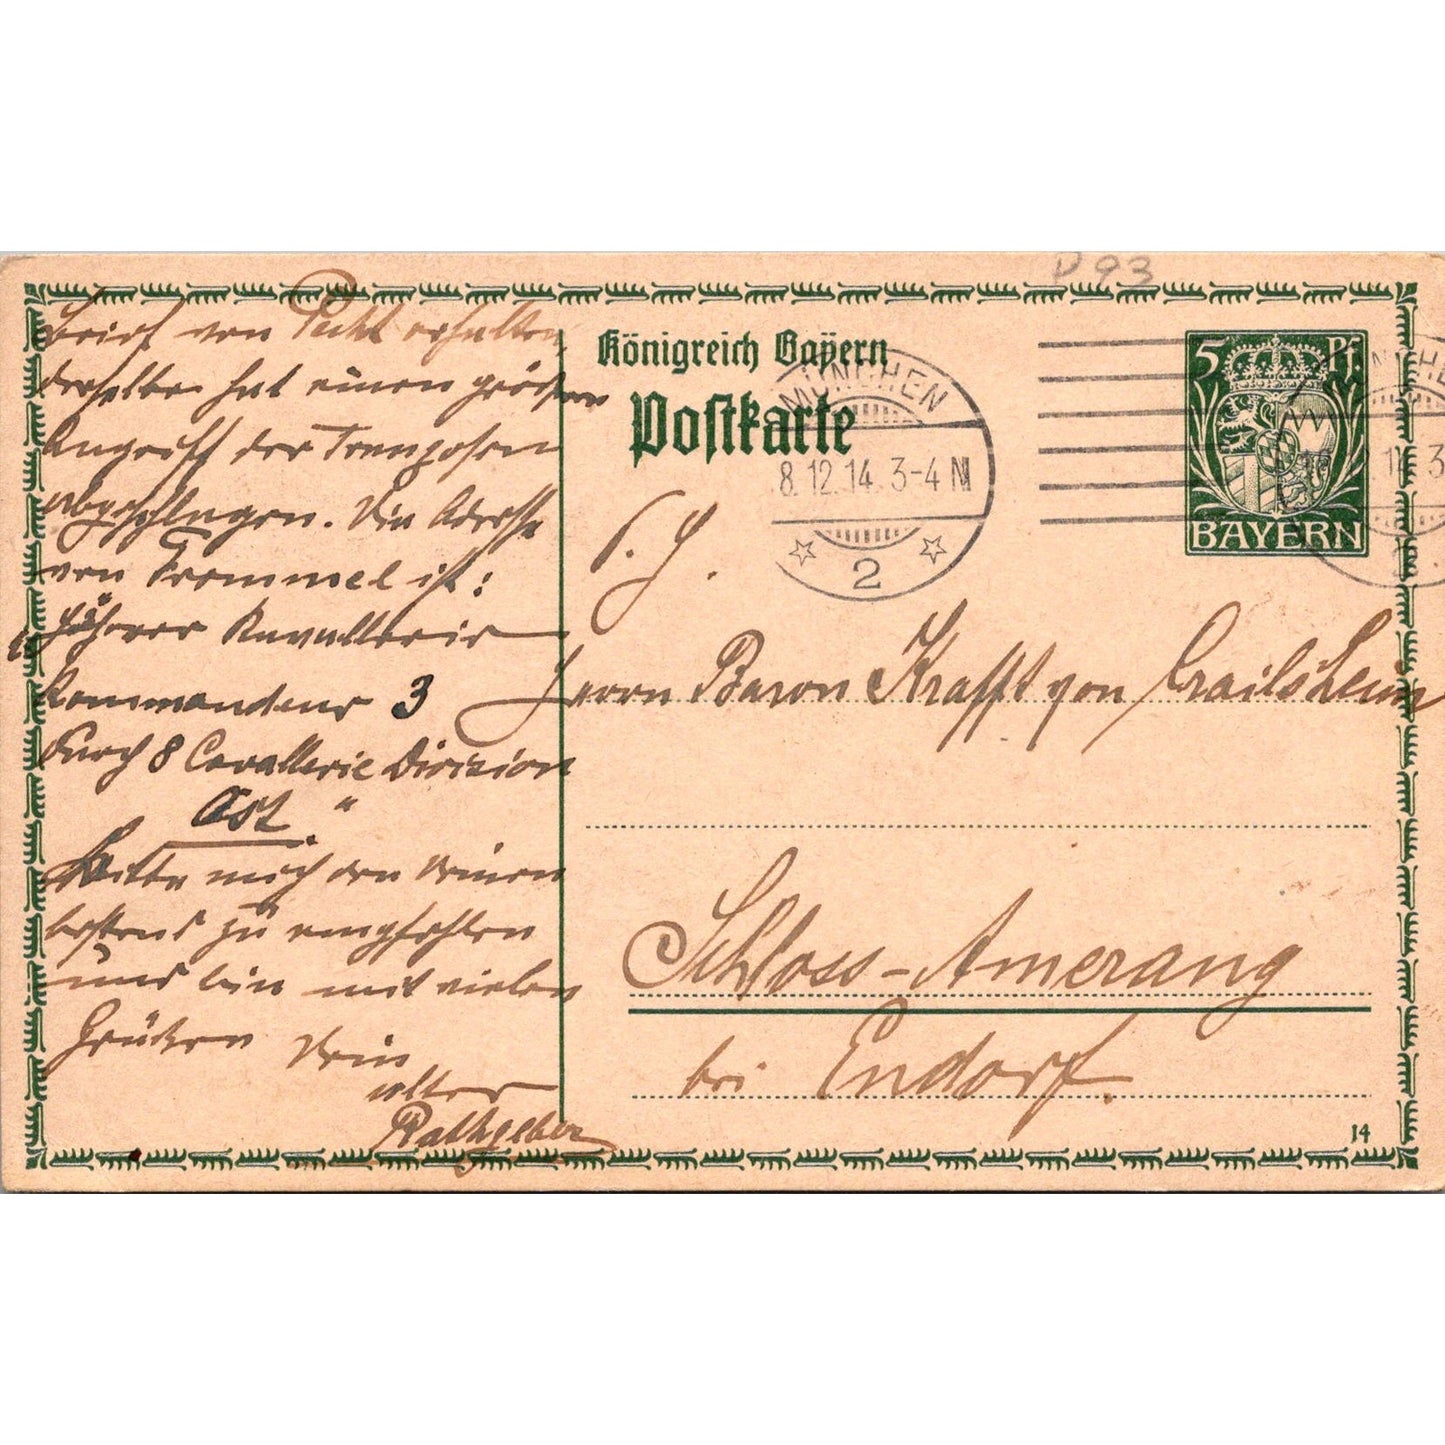 Brief von Pecht erhalten,
derselbe hat einen grösseren
Angriff der Franzosen
abgeschlagen. Die Adresse
von Frommel ist:
„Höherer Kavallerie
Kommandeur 3
durch 8 Cavallerie Division
Ost."
Bitte mich den Deinen
bestens zu empfehlen
und bin mit vielen
Grüßen Dein
alter
Rathgeber
D 93
Königreich Bayern
Postkarte
MÜNCHEN
8.12.14. 3-4 N
2
5 Pf.
BAYERN
S. H.
Herrn Baron Krafft von Crailsheim
Schloss-Amerang
bei Endorf.
14